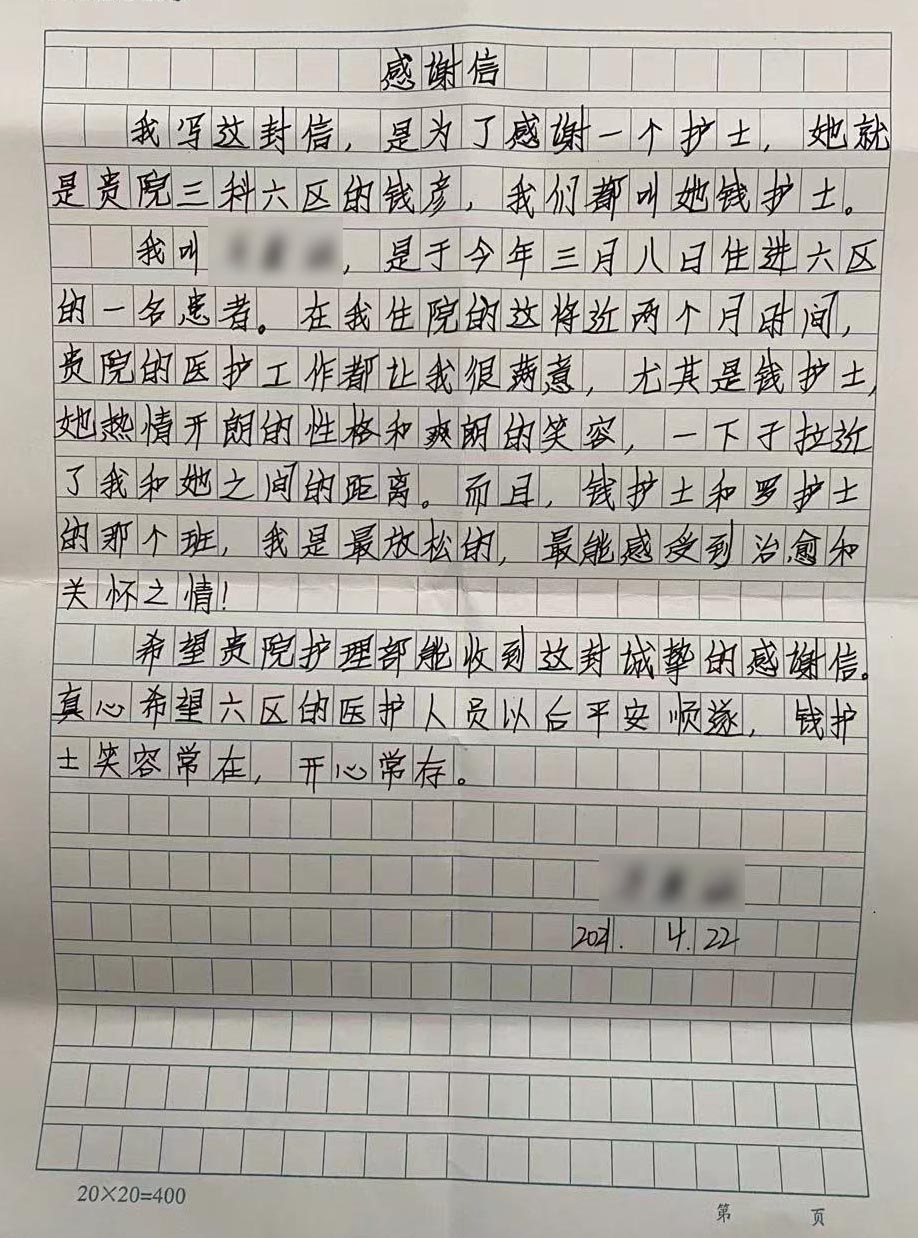 感谢信
我写这封信，是为了感谢一个护士，她就
是贵院三科六区的钱彦，我们都叫她钱护士。
我叫，是于今年三月八日住进六区
的一名患者。在我住院的这将近两个月时间，
贵院的医护工作都让我很满意，尤其是钱护士，
她热情开朗的性格和爽朗的笑容，一下子拉近
了我和她之间的距离。而且，钱护士和罗护士
的那个班，我是最放松的，最能感受到治愈和
关怀之情！
希望贵院护理部能收到这封诚挚的感谢信。
真心希望六区的医护人员以后平安顺遂，钱护
士笑容常在，开心常存。
2021. 4.22
20×20=400
第 页